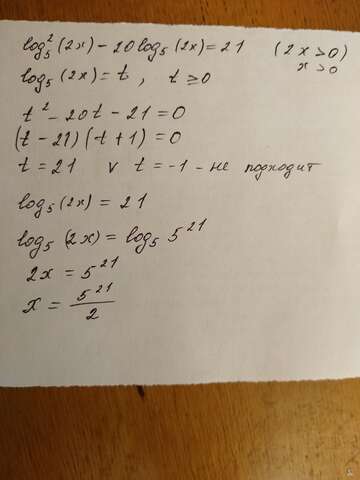 log₅²(2x) - 20log₅(2x) = 21 (2x > 0)
x > 0
log₅(2x) = t, t ≥ 0
t² - 20t - 21 = 0
(t - 21)(t + 1) = 0
t = 21 v t = -1 - не подходит
log₅(2x) = 21
log₅(2x) = log₅ 5²¹
2x = 5²¹
x = 5²¹/2